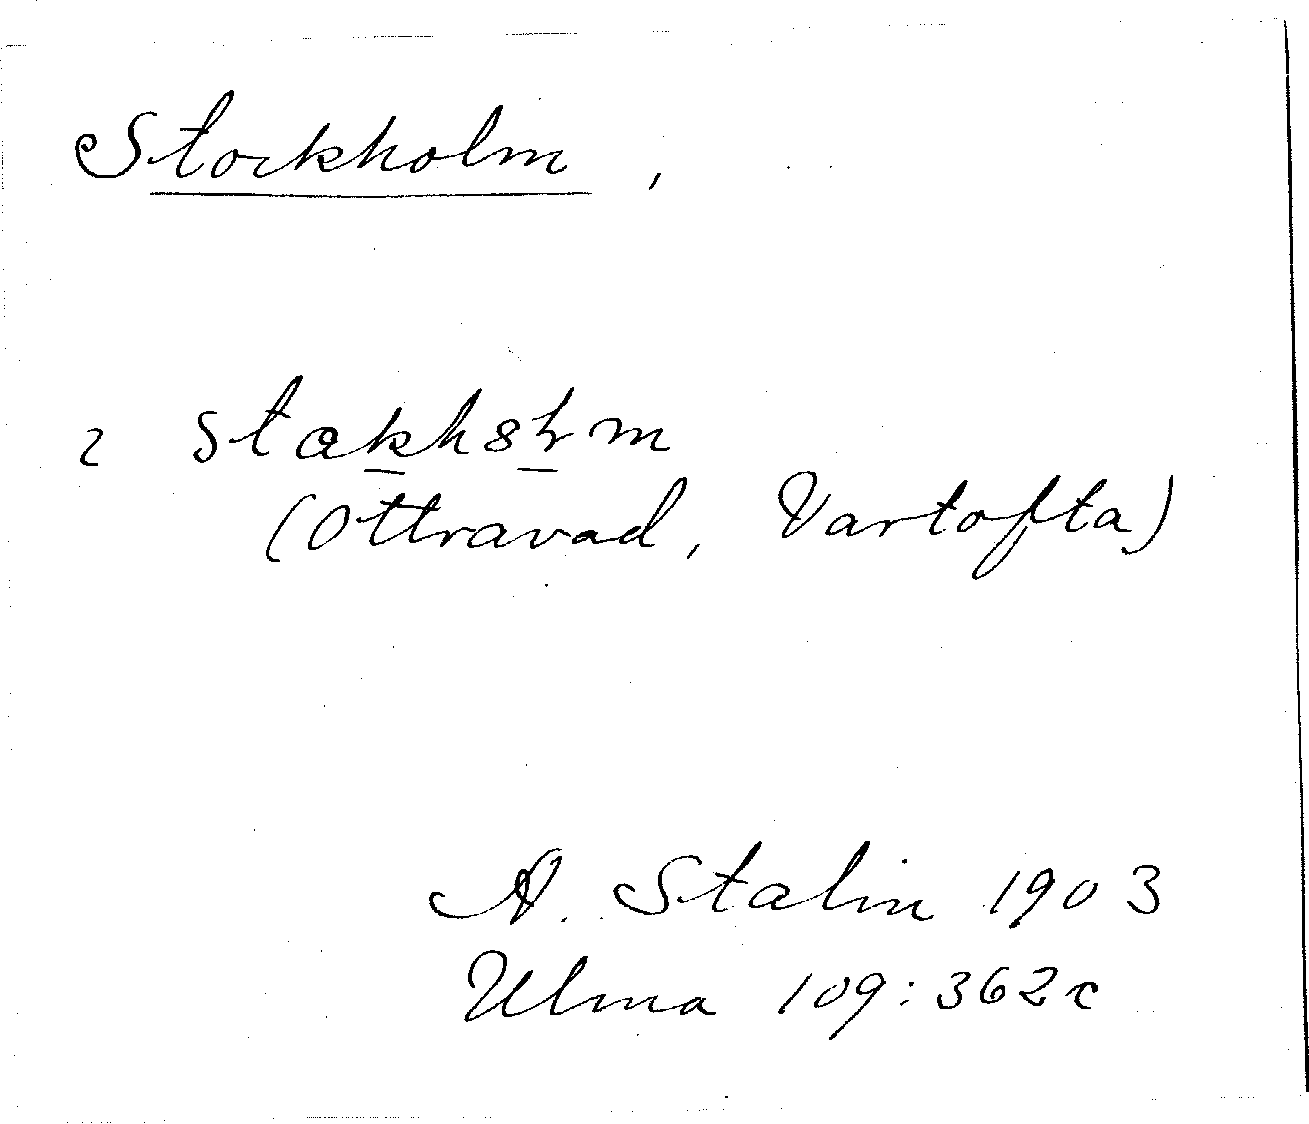 Stockholm,
2 stakh8lm
(Ottravad, Vartofta)
A. Stalin 1903
Ulma 109:362c